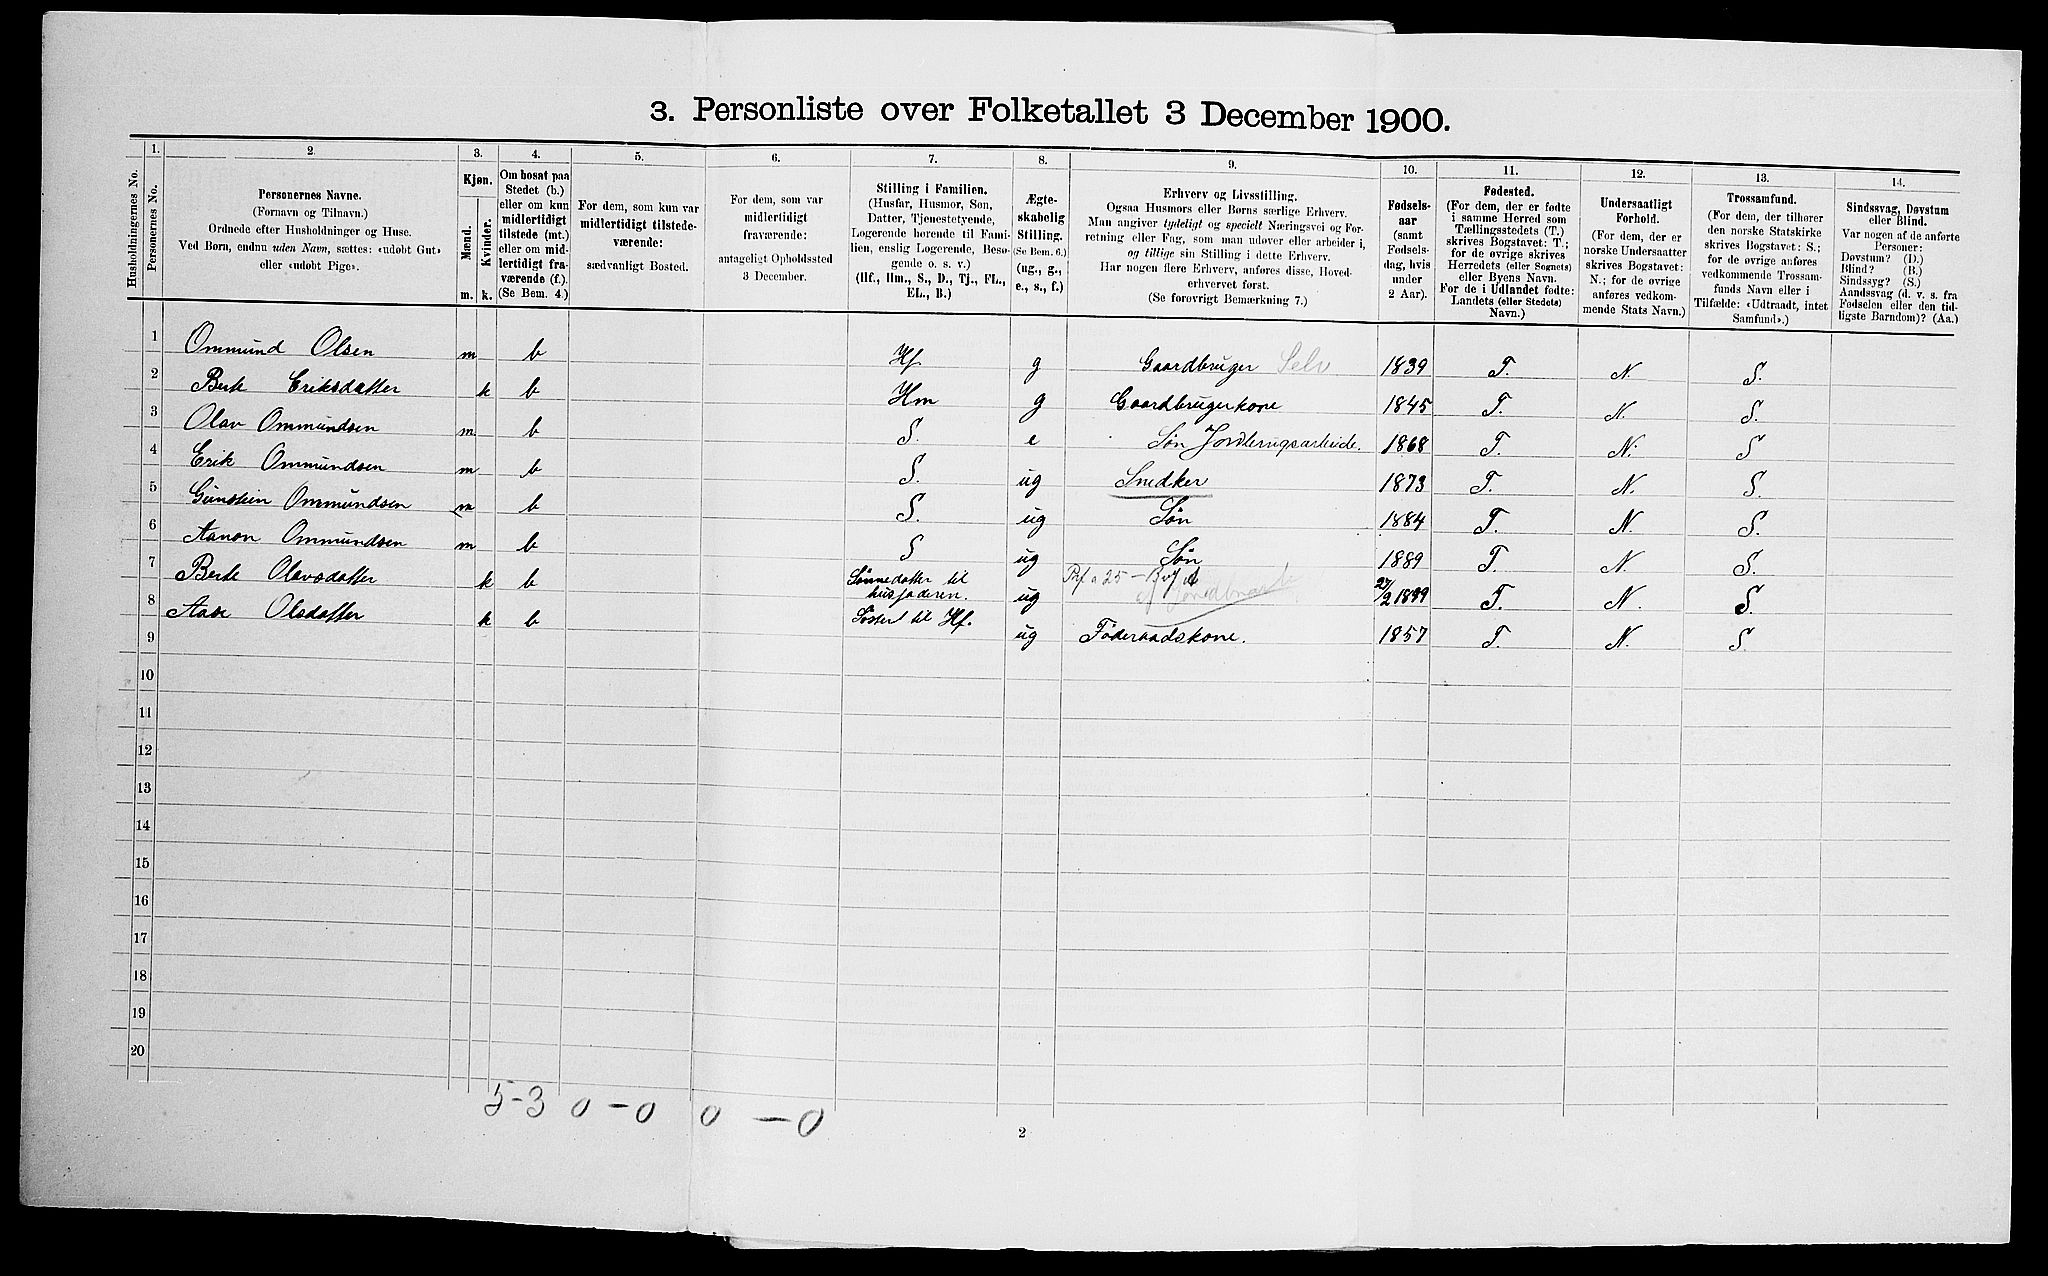 3. Personliste over Folketallet 3 December 1900.
Husholdningernes No.
1.
Personernes No.
2.
Personernes Navne.
(Fornavn og Tilnavn.)
Ordnede efter Husholdninger og Huse.
Ved Børn, endnu uden Navn, sættes: «udøbt Gut»
eller «udøbt Pige».
3.
Kjøn.
Mænd.
Kvinder.
m. k.
4.
Om bosat paa
Stedet (b.)
eller om kun
midlertidigt
tilstede (mt.)
eller om mid-
lertidigt fra-
værende (f.)
(Se Bem. 4.)
5.
For dem, som kun var
midlertidigt tilstede-
værende:
sædvanligt Bosted.
6.
For dem, som var
midlertidigt
fraværende:
antageligt Opholdssted
3 December.
7.
Stilling i Familien.
(Husfar, Husmor, Søn,
Datter, Tjenestetyende,
Logerende hørende til Fami-
lien, enslig Logerende, Besø-
gende o. s. v.)
(Hf., Hm., S., D., Tj., FL.,
EL., B.)
8.
Ægte-
skabelig
Stilling.
(Se Bem. 6.)
(ug., g.,
e., s., f.)
9.
Erhverv og Livsstilling.
Ogsaa Husmors eller Børns særlige Erhverv.
Man angiver tydeligt og specielt Næringsvei og For-
retning eller Fag, som man udøver eller arbeider i,
og tillige sin Stilling i dette Erhverv.
Har nogen flere Erhverv, anføres disse, Hoved-
erhvervet først.
(Se forøvrigt Bemærkning 7.)
10.
Fødsels-
aar
(samt
Fødsels-
dag, hvis
under
2 Aar).
11.
Fødested.
(For dem, der er fødte
i samme Herred som
Tællingsstedets (T.)
skrives Bogstavet: T.;
for de øvrige skrives
Herredets (eller Sognets)
eller Byens Navn.
For de i Udlandet fødte:
Landets (eller Stedets)
Navn.)
12.
Undersaatligt
Forhold.
(For dem, der er
norske Undersaatter
skrives Bogstavet:
N.; for de øvrige
anføres vedkom-
mende Stats Navn.)
13.
Trossamfund.
(For dem, der tilhører
den norske Statskirke
skrives Bogstavet: S.;
for de øvrige anføres
vedkommende Trossam-
funds Navn eller i
Tilfælde: «Udtraadt, intet
Samfund».)
14.
Sindssvag, Døvstum
eller Blind.
Var nogen af de anførte
Personer:
Døvstum? (D.)
Blind? (B.)
Sindssyg? (S.)
Aandssvag (d. v. s. fra
Fødselen eller den tid-
ligste Barndom)? (Aa.)
1 Ommund Olsen m b Hf g Gaardbruger Selv 1839 T. N. S.
2 Berte Eriksdatter k b Hm g Gaardbrugerkone 1845 T. N S.
3 Olav Ommundsen m b S. e Søn Jordbrugsarbeide. 1868 T. N. S
4 Erik Ommundsen m b S. ug Snedker 1873 T. N. S.
5 Gunstein Ommundsen m b S. ug Søn 1884 T. N. S.
6 Aanon Ommundsen m b S ug Søn 1889 T. N. S.
7 Berte Olavsdatter k b Sønnedatter til husfaderen. ug 27/2 1899 T. N. S.
8 Aase Olsdatter k b Søster til Hf. ug Føderaadskone. 1857 T. N. S.
9
10
11
12
13
14
15
16
17
18
19
20
5-3 0-0 0-0
2